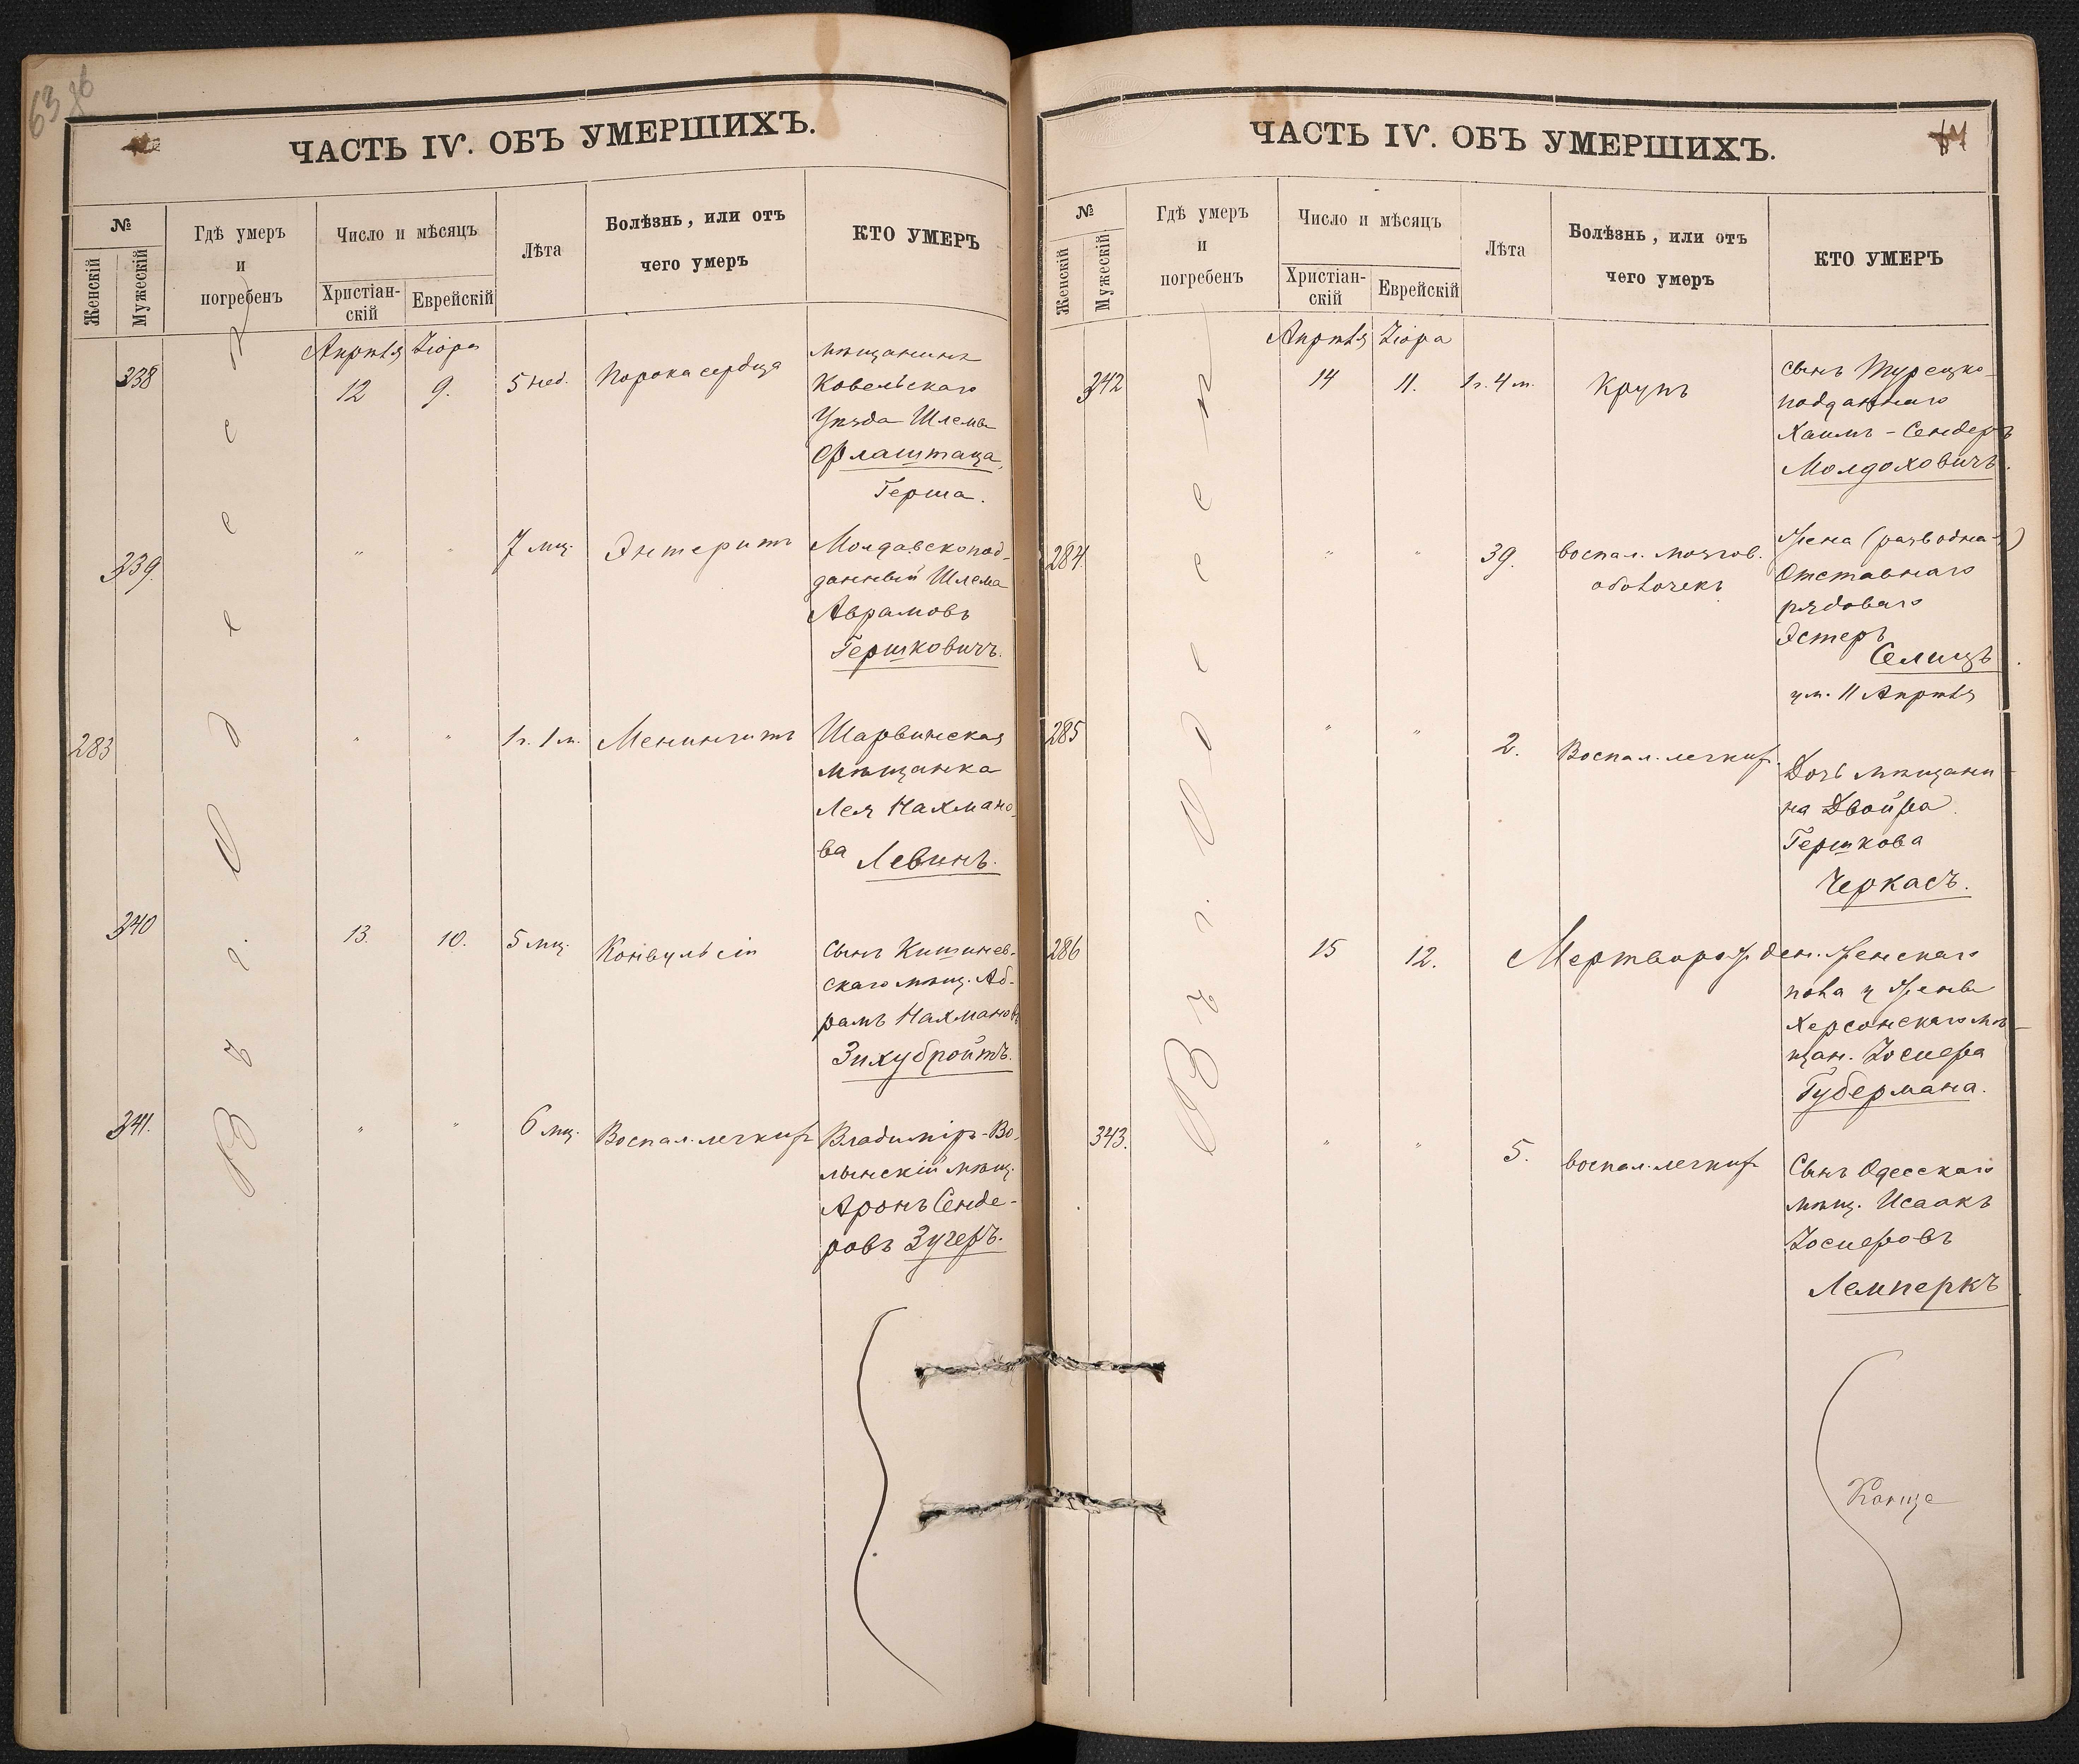 63 об
ЧАСТЬ IV. ОБЪ УМЕРШИХЪ.
№
Женскій
Мужескій
Гдѣ умеръ
и
погребенъ
Число и мѣсяцъ
Христіан-
скій
Еврейскій
Лѣта
Болѣзнь, или отъ
чего умеръ
КТО УМЕРЪ
Въ г. Одессѣ
Апрѣля Іира
338
12
9.
5 нед.
Порока сердца
мѣщанинъ
Ковельскаго
Уѣзда Шлемы
Флаштаца,
Герша.
339.
" "
7 мц.
Энтеритъ
Молдавскопод-
данный Шлема
Аврамовъ
Гершковичъ.
283
" "
1 г. 1 м.
Менингитъ
Шарвинская
мѣщанка
Лея Нахмано-
ва Левинъ.
340
13.
10.
5 мц.
Конвульсіи
Сынъ Кишинев-
скаго мѣщ. Аб-
рамъ Нахмановъ
Зихубройтъ.
341.
" "
6 мц.
Воспал. легкихъ
Владиміръ-Во-
лынскій мѣщ.
Аронъ Сенде-
ровъ Зугеръ.
ЧАСТЬ IV. ОБЪ УМЕРШИХЪ.
№
Женскій
Мужескій
Гдѣ умеръ
и
погребенъ
Число и мѣсяцъ
Христіан-
скій
Еврейскій
Лѣта
Болѣзнь, или отъ
чего умеръ
КТО УМЕРЪ
Въ г. Одессѣ
Апрѣля Іира
342
14
11.
1 г. 4 м.
Крупъ
сынъ Турецко-
подданнаго
Хаимъ-Сендеръ
Молдоховичъ.
284.
" "
39.
воспал. мозгов.
оболочекъ
Жена (разводная)
Отставнаго
рядоваго
Эстеръ
Селищъ.
ум. 11 Апрѣля
285
" "
2.
Воспал. легкихъ.
Дочь мѣщани-
на Двойра
Гершкова
Черкасъ.
286
15
12.
Мертворожден. женскаго
пола у жены
Херсонскаго мѣ-
щан. Іосифа
Губермана.
343.
" "
5.
воспал. легкихъ
Сынъ Одесскаго
мѣщ. Исаакъ
Іосифовъ
Лемперкъ